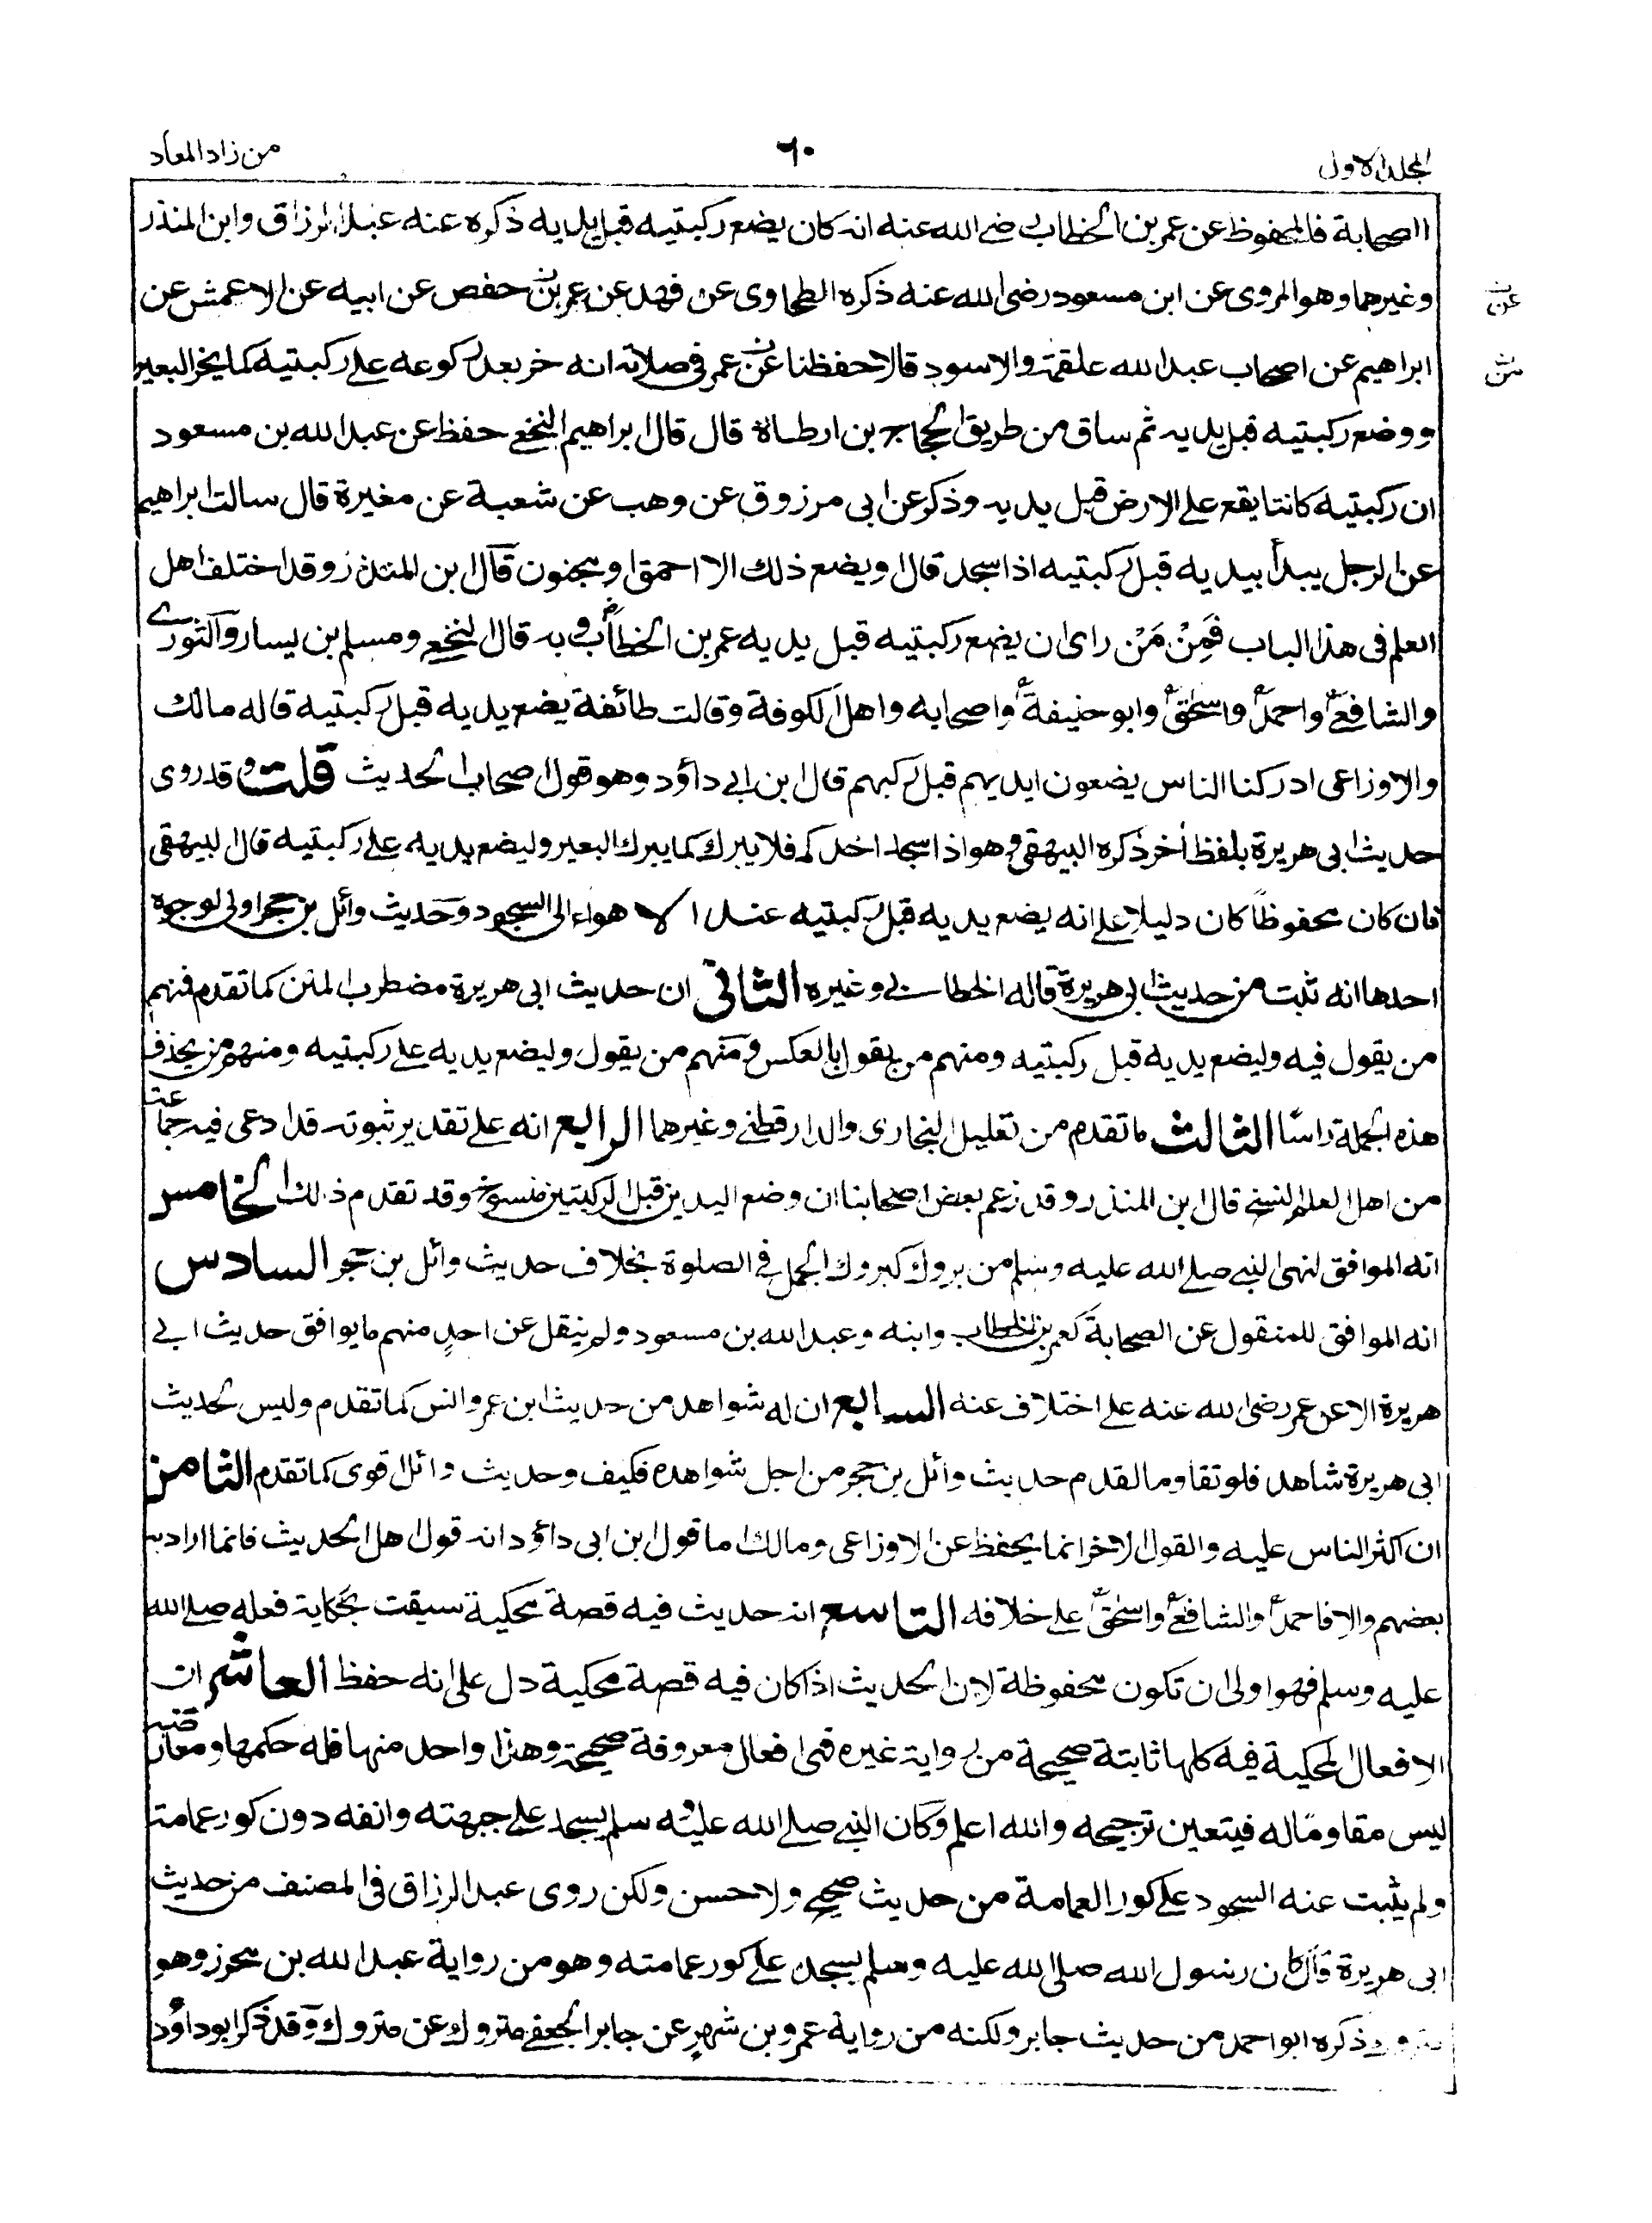 المجلد الاول
٦٠
من زاد المعاد
الصحابة فالمحفوظ عن عمر بن الخطاب رضي الله عنه انه كان يضع ركبتيه قبل يديه ذكره عنه عبد الرزاق وابن المنذر
وغيرهما وهو المروى عن ابن مسعود رضى الله عنه ذكره الطحاوى عن فهد عن عمر بن حفص عن ابيه عن الاعمش عن
ابراهيم عن اصحاب عبد الله علقمة والاسود قالا حفظنا عن عمر فى صلاته انه خر بعد ركوعه على ركبتيه كما يخر البعير
ووضع ركبتيه قبل يديه ثم ساق من طريق الحجاج بن ارطاة قال قال ابراهيم النخعي حفظ عن عبد الله بن مسعود
ان ركبتيه كانتا يقع على الارض قبل يديه وذكر عن ابى مرزوق عن وهب عن شعبة عن مغيرة قال سالت ابراهيم
عن الرجل يبدأ بيديه قبل ركبتيه اذا سجد قال او يضع ذلك الا احمق او مجنون قال ابن المنذر وقد اختلف اهل
العلم فى هذا الباب فمن من راى ان يضع ركبتيه قبل يديه عمر بن الخطاب وبه قال النخعي ومسلم بن يسار والثوري
والشافعي واحمد واسحق وابو حنيفة واصحابه واهل الكوفة وقالت طائفة يضع يديه قبل ركبتيه قاله مالك
والاوزاعى ادركنا الناس يضعون ايديهم قبل ركبهم قال ابن ابي داؤد وهو قول اصحاب الحديث قلت وقد روى
حديث ابى هريرة بلفظ أخر ذكره البيهقى وهو اذا سجد احدكم فلا يبرك كما يبرك البعير وليضع يديه على ركبتيه قال البيهقى
فان كان محفوظاً كان دليلا على انه يضع يديه قبل ركبتيه عند الاهواء الى السجود وحديث وائل بن حجر اولى لوجوه
احدها انه ثبت من حديث ابى هريرة قاله الخطابي وغيره الثانى ان حديث ابى هريرة مضطرب المتن كما تقدم فمنهم
من يقول فيه وليضع يديه قبل ركبتيه ومنهم من يقول بالعكس ومنهم من يقول وليضع يديه على ركبتيه ومنهم من يحذف
هذه الجملة راسًا الثالث ما تقدم من تعليل البخارى والدارقطني وغيرهما الرابع انه على تقدير ثبوته قد ادعى فيه جماعة
من اهل العلم النسخ قال ابن المنذر وقد زعم بعض اصحابنا ان وضع اليدين قبل الركبتين منسوخ وقد تقدم ذلك الخامس
انه الموافق لنهى النبي صلى الله عليه وسلم من بروك كبروك الجمل في الصلوة بخلاف حديث وائل بن حجر السادس
انه الموافق للمنقول عن الصحابة كعمر بن الخطاب وابنه وعبد الله بن مسعود ولم ينقل عن احدٍ منهم ما يوافق حديث ابي
هريرة الا عن عمر رضى الله عنه على اختلاف عنه السابع ان له شواهد من حديث ابن عمر وانس كما تقدم وليس لحديث
ابى هريرة شاهد فلو تقاوما لقدم حديث وائل بن حجر من اجل شواهده فكيف وحديث وائل اقوى كما تقدم الثامن
ان اكثر الناس عليه والقول الاخر انما يحفظ عن الاوزاعى ومالك اما قول ابن ابى داؤد انه قول اهل الحديث فانما اراد به
بعضهم والا فاحمد والشافعي واسحق على خلافه التاسع انه حديث فيه قصة محكية سيقت بحكاية فعله صلى الله
عليه وسلم فهو اولى ان تكون محفوظة لان الحديث اذا كان فيه قصة محكية دل على انه حفظ العاشر ان
الافعال المحكية فيه كلها ثابتة صحيحة من رواية غيره فهى افعال معروفة صحيحة وهذا واحد منها فله حكمها ومعارضه
ليس مقاومًا له فيتعين ترجيحه والله اعلم وكان النبي صلى الله عليه وسلم يسجد على جبهته وانفه دون كور عمامته
ولم يثبت عنه السجود على كور العمامة من حديث صحيح ولا حسن ولكن روى عبد الرزاق فى المصنف من حديث
ابى هريرة قال كان رسول الله صلى الله عليه وسلم يسجد على كور عمامته وهو من رواية عبد الله بن محرز وهو
متروك ذكره ابو احمد من حديث جابر ولكنه من رواية عمرو بن شهر عن جابر الجعفي متروك عن متروك وقد ذكر ابو داؤد